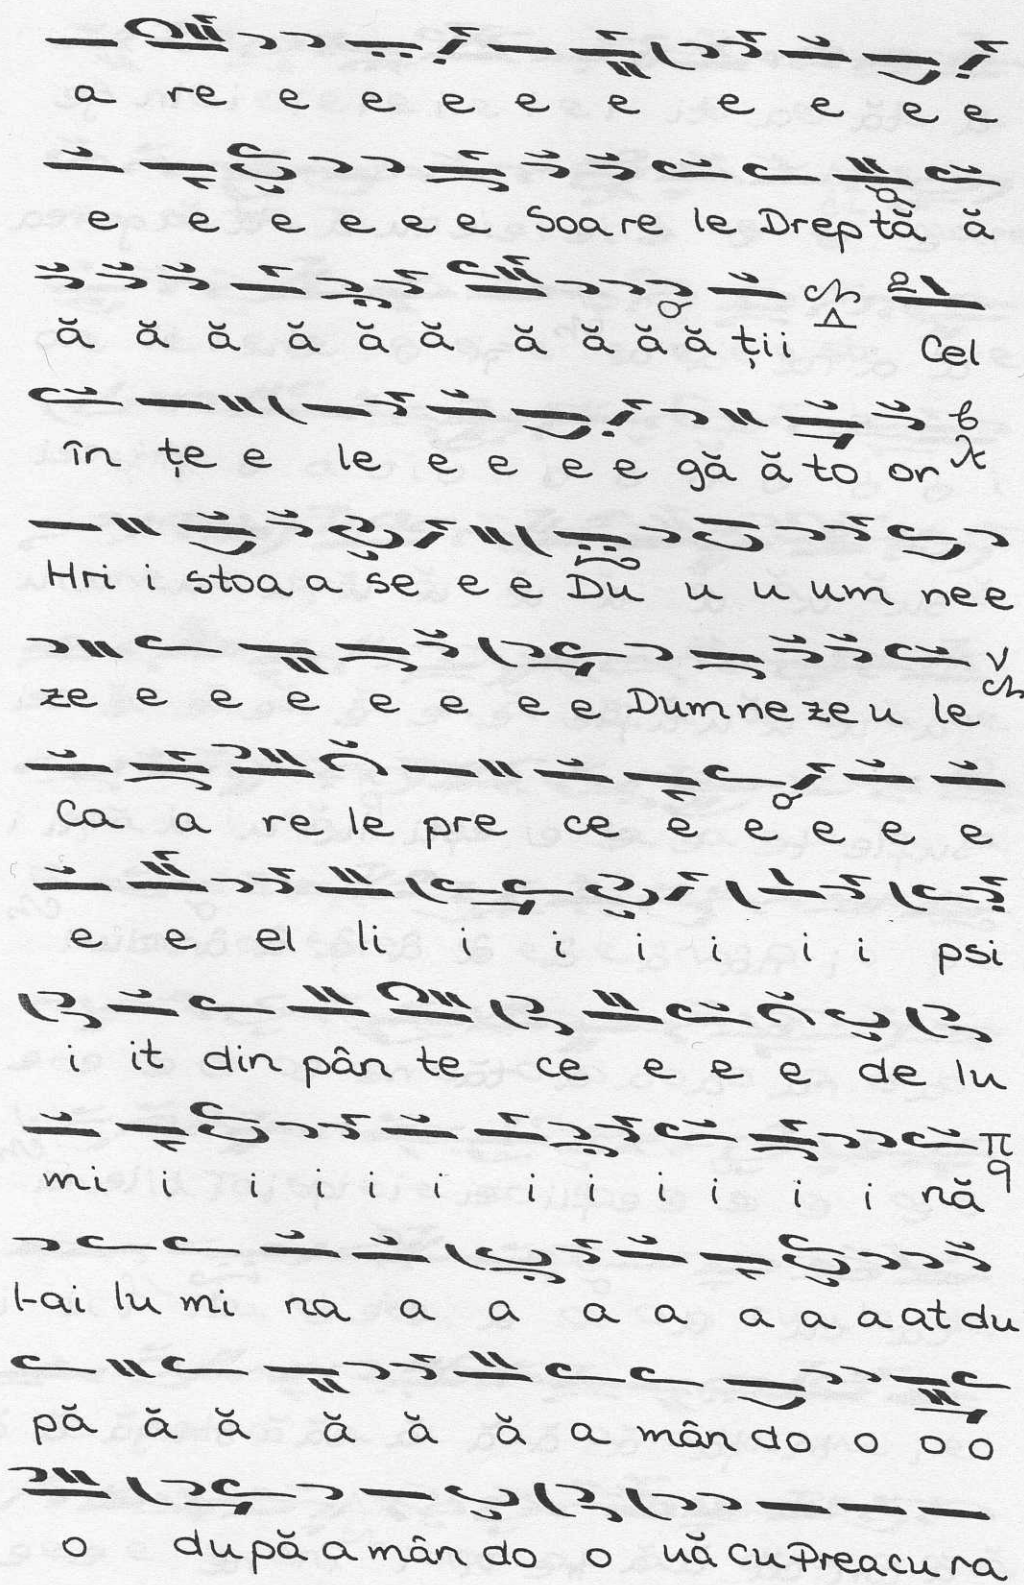 a re e e e e e e e e e
e e e e e e Soare le Dreptă ă
ă ă ă ă ă ă ă ă ă ă ții Cel
în țe e le e e e e gă ă to or
Hri i stoa a se e e Du u u um ne e
ze e e e e e e e Dumnezeu le
Ca a re le pre ce e e e e e
e e el li i i i i i i psi
i it din pân te ce e e e de lu
mi i i i i i i i i i i i nă
l-ai lu mi na a a a a a a a at du
pă ă ă ă ă ă a mân do o o o
o după amân do o uă cu Preacu ra